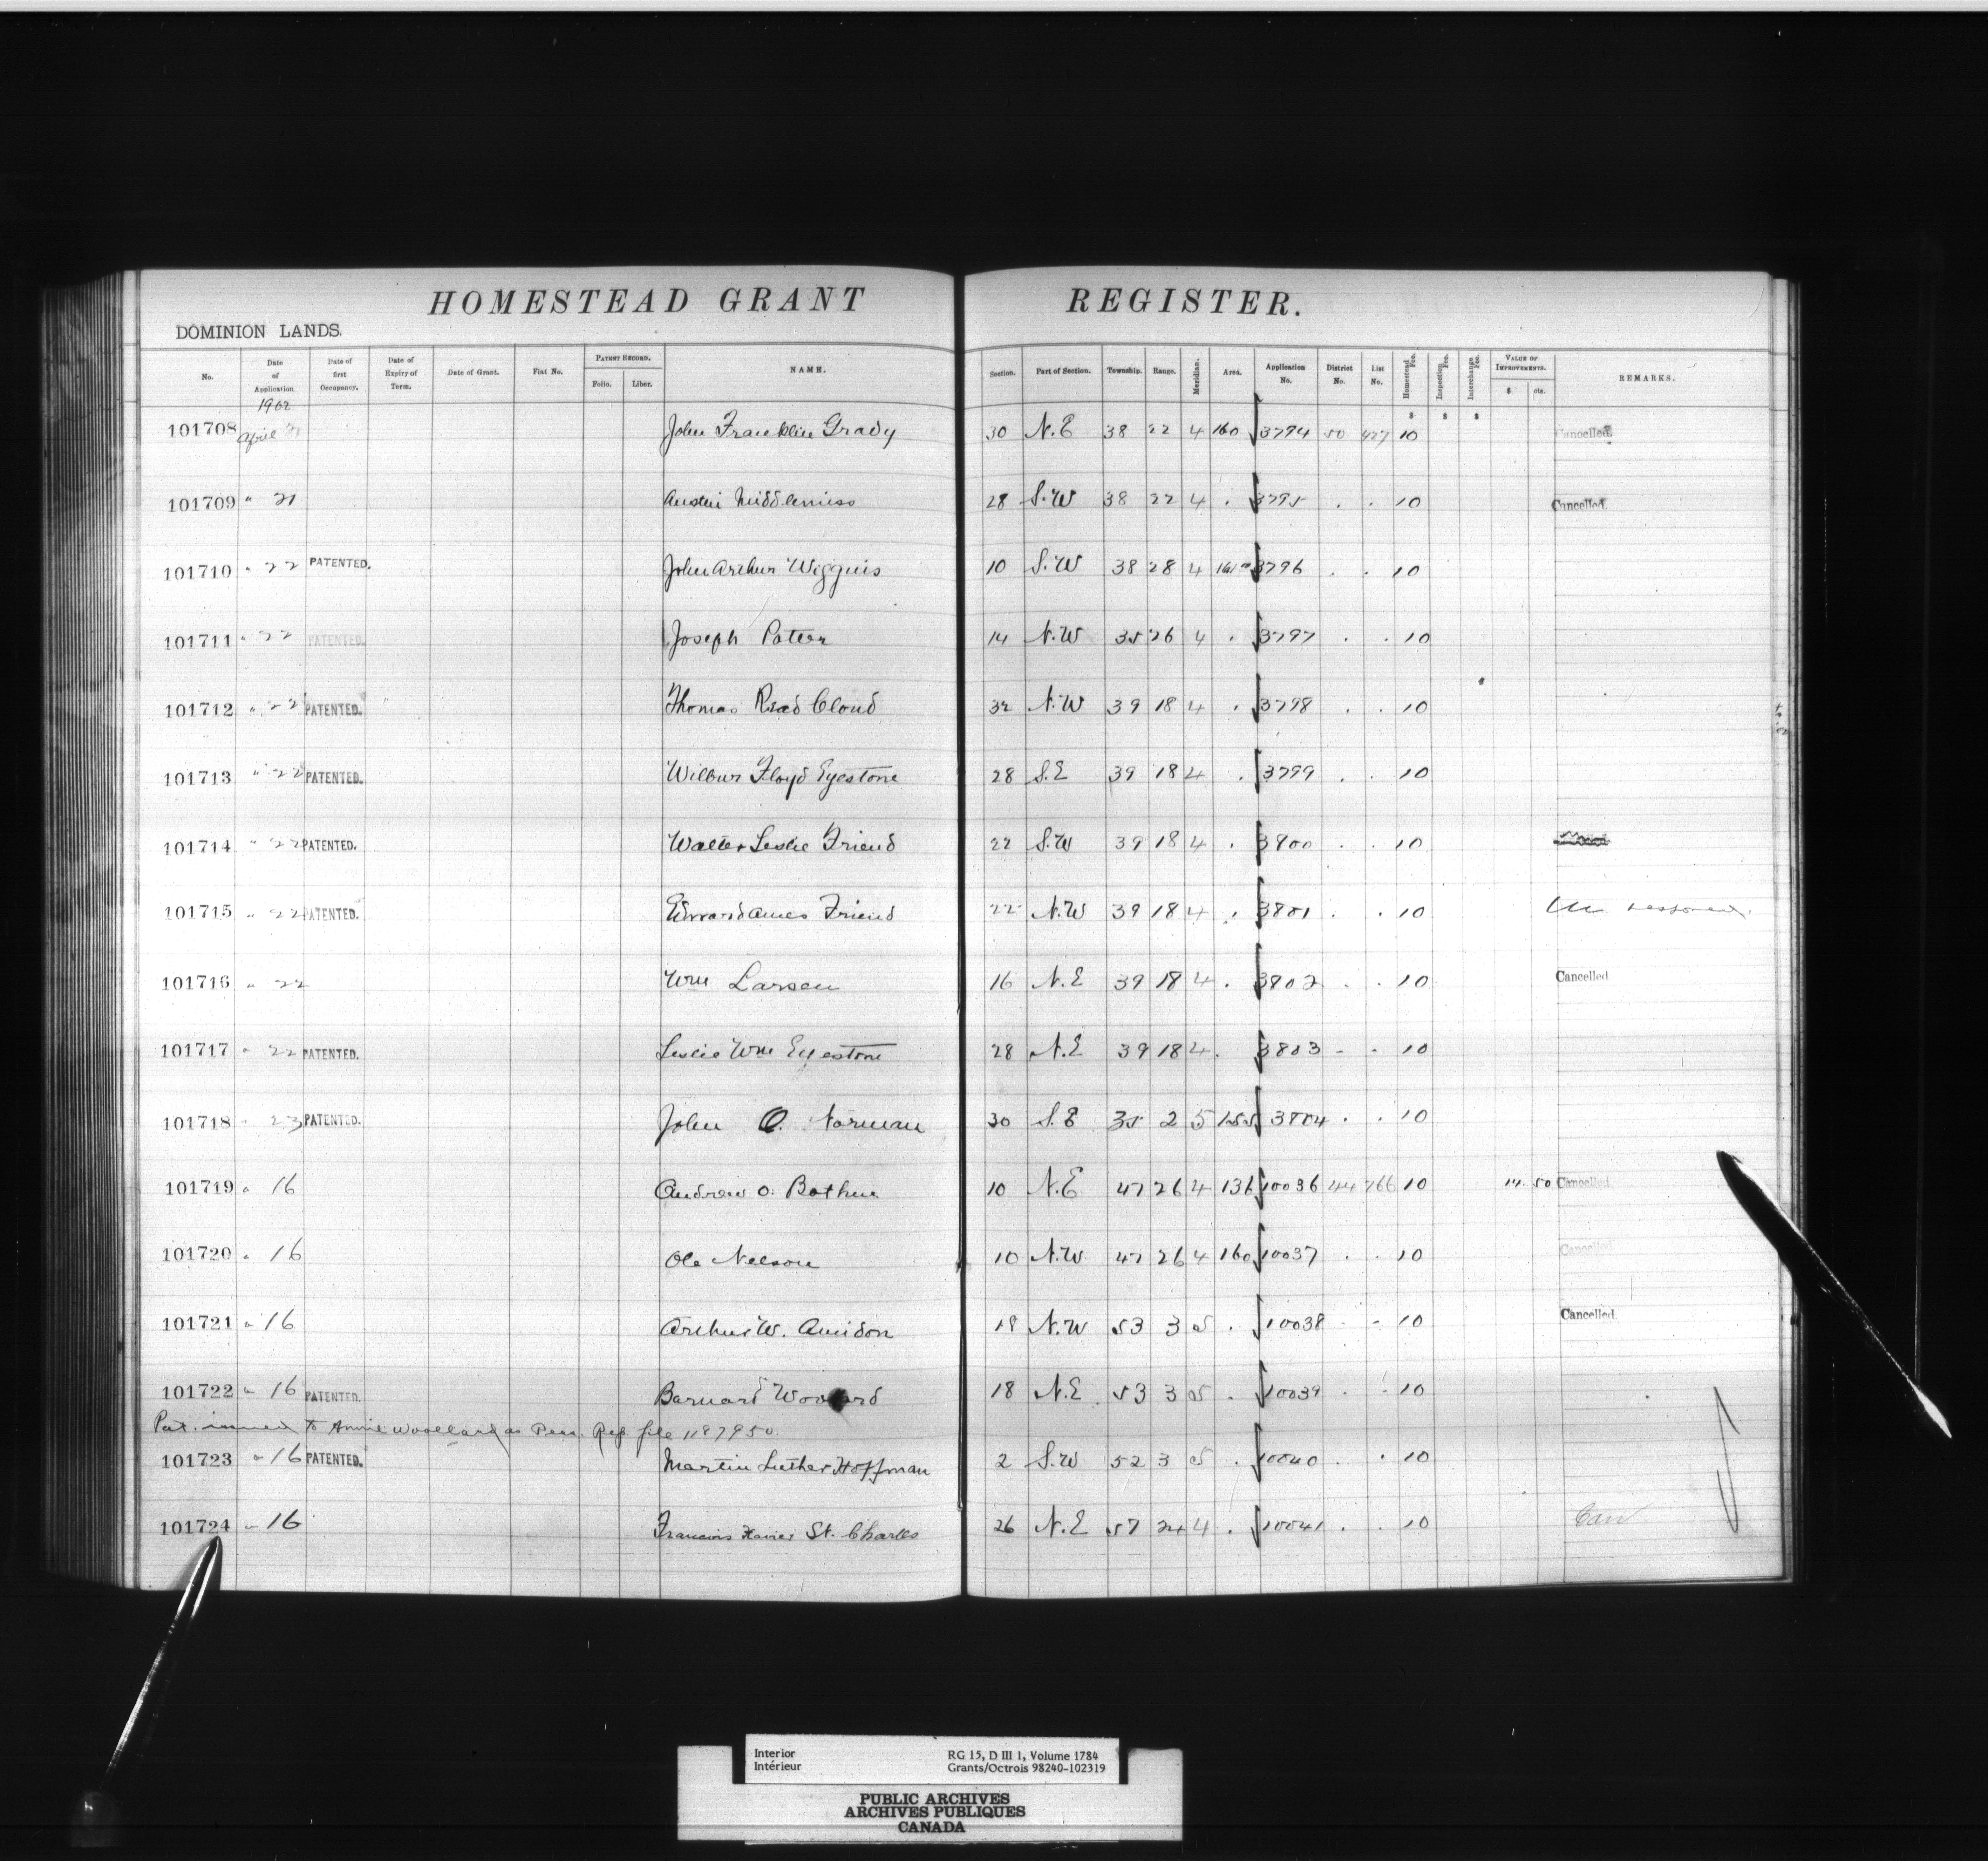 HOMESTEAD GRANT REGISTER.
DOMINION LANDS.
No. Date of Application. Date of first Occupancy. Date of Expiry of Term. Date of Grant. Fiat No. PATENT RECORD. Folio. Liber. NAME. Section. Part of Section. Township. Range. Meridian. Area. Application No. District No. List No. Homestead Fee. Inspection Fee. Interchange Fee. VALUE OF IMPROVEMENTS. $ cts. REMARKS.
1902 $ $ $
101708 April 21 John Franklin Grady 30 N.E 38 22 4 160 3794 50 427 10 Cancelled.
101709 " 21 Austin Middlemiss 28 S.W 38 22 4 . 3795 . . 10 Cancelled.
101710 " 22 PATENTED. John Arthur Wiggins 10 S.W 38 28 4 3796 . . 10
101711 " 22 PATENTED. Joseph Potter 14 N.W 35 26 4 . 3797 . . 10
101712 " 22 PATENTED. Thomas Read Cloud 32 N.W 39 18 4 . 3798 . . 10
101713 " 22 PATENTED. Wilbur Floyd Eyestone 28 S.E 39 18 4 . 3799 . . 10
101714 " 22 PATENTED. Walter Leslie Friend 22 S.W 39 18 4 . 3800 . . 10
101715 " 22 PATENTED. Edward Ames Friend 22 N.W 39 18 4 . 3801 . . 10
101716 " 22 Wm Larsen 16 N.E 39 18 4 . 3802 . . 10 Cancelled
101717 " 22 PATENTED. Leslie Wm Eyestone 28 N.E 39 18 4 . 3803 - - 10
101718 " 23 PATENTED. John O. Norman 30 S.E 35 2 5 155 3804 . . 10
101719 " 16 Andrew O. Bothun 10 N.E 47 26 4 136 10036 44 766 10 14 50 Cancelled
101720 " 16 Ole Nelson 10 N.W. 47 26 4 160 10037 . . 10 Cancelled
101721 " 16 Arthur W. Amidon 18 N.W 53 3 5 . 10038 - - 10 Cancelled.
101722 " 16 PATENTED. Barnard 18 N.E 53 3 5 . 10039 . . 10
Pat. issued to Annie Woollard as Pers. Rep. file 1187950.
101723 " 16 PATENTED. Martin Luther Hoffman 2 S.W 52 3 5 . 10040 . . 10
101724 " 16 Francois Xavier St. Charles 26 N.E 57 24 4 . 10041 . . 10 Can
Interior RG 15, D III 1, Volume 1784
Intérieur Grants/Octrois 98240-102319
PUBLIC ARCHIVES
ARCHIVES PUBLIQUES
CANADA